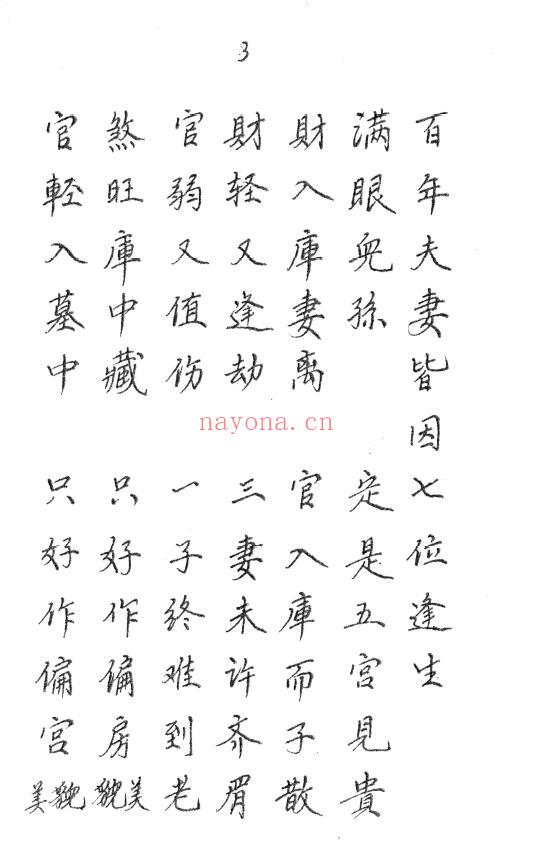 3
百年夫妻皆因 七位逢生
满眼兒孫 定是五宮見貴
財入庫妻离 官入庫而子散
財轻又逢劫 三妻未许齐眉
官弱又值伤 一子终难到老
煞旺庫中藏 只好作偏房 貌美
官輕入墓中 只好作偏宫 美貌
nayona.cn